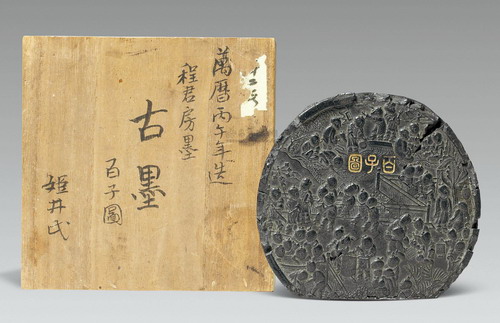 萬曆丙午年造
程君房墨
古墨
百子圖
姫井氏
百子圖